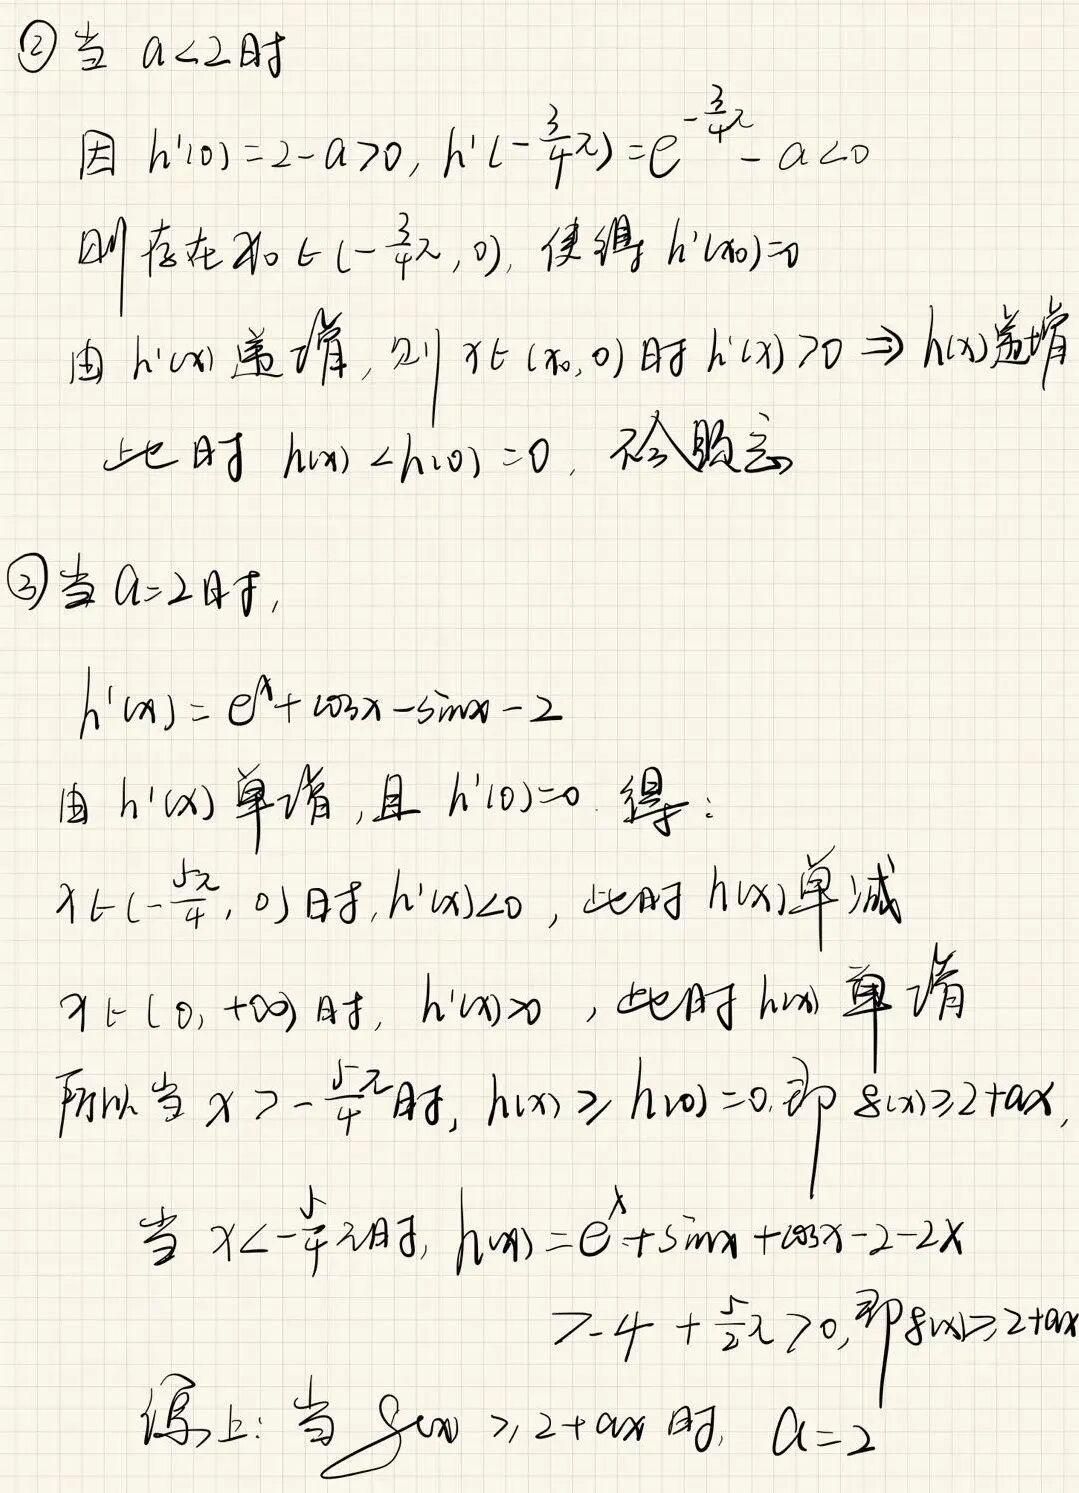 ② 当 a<2时
因 h'(0)=2-a>0, h'(-3/4π)=e^{-3/4π}-a<0
则存在x₀∈(-3/4π,0), 使得 h'(x₀)=0
由 h'(x) 递增, 则 x∈(x₀,0) 时 h'(x)>0 ⇒ h(x)递增
此时 h(x)<h(0)=0, 不合题意
③ 当 a=2时,
h'(x)=e^x+cosx-sinx-2
由 h'(x) 单增, 且 h'(0)=0. 得:
x∈(-5π/4, 0) 时, h'(x)<0, 此时 h(x)单减
x∈(0,+∞) 时, h'(x)>0, 此时 h(x) 单增
所以当 x>-5π/4时, h(x)≥h(0)=0, 即 g(x)≥2+ax,
当 x<-5/4π时, h(x)=e^x+sinx+cosx-2-2x
>-4+5/2π>0, 即g(x)≥2+ax
综上: 当 g(x)≥2+ax 时, a=2